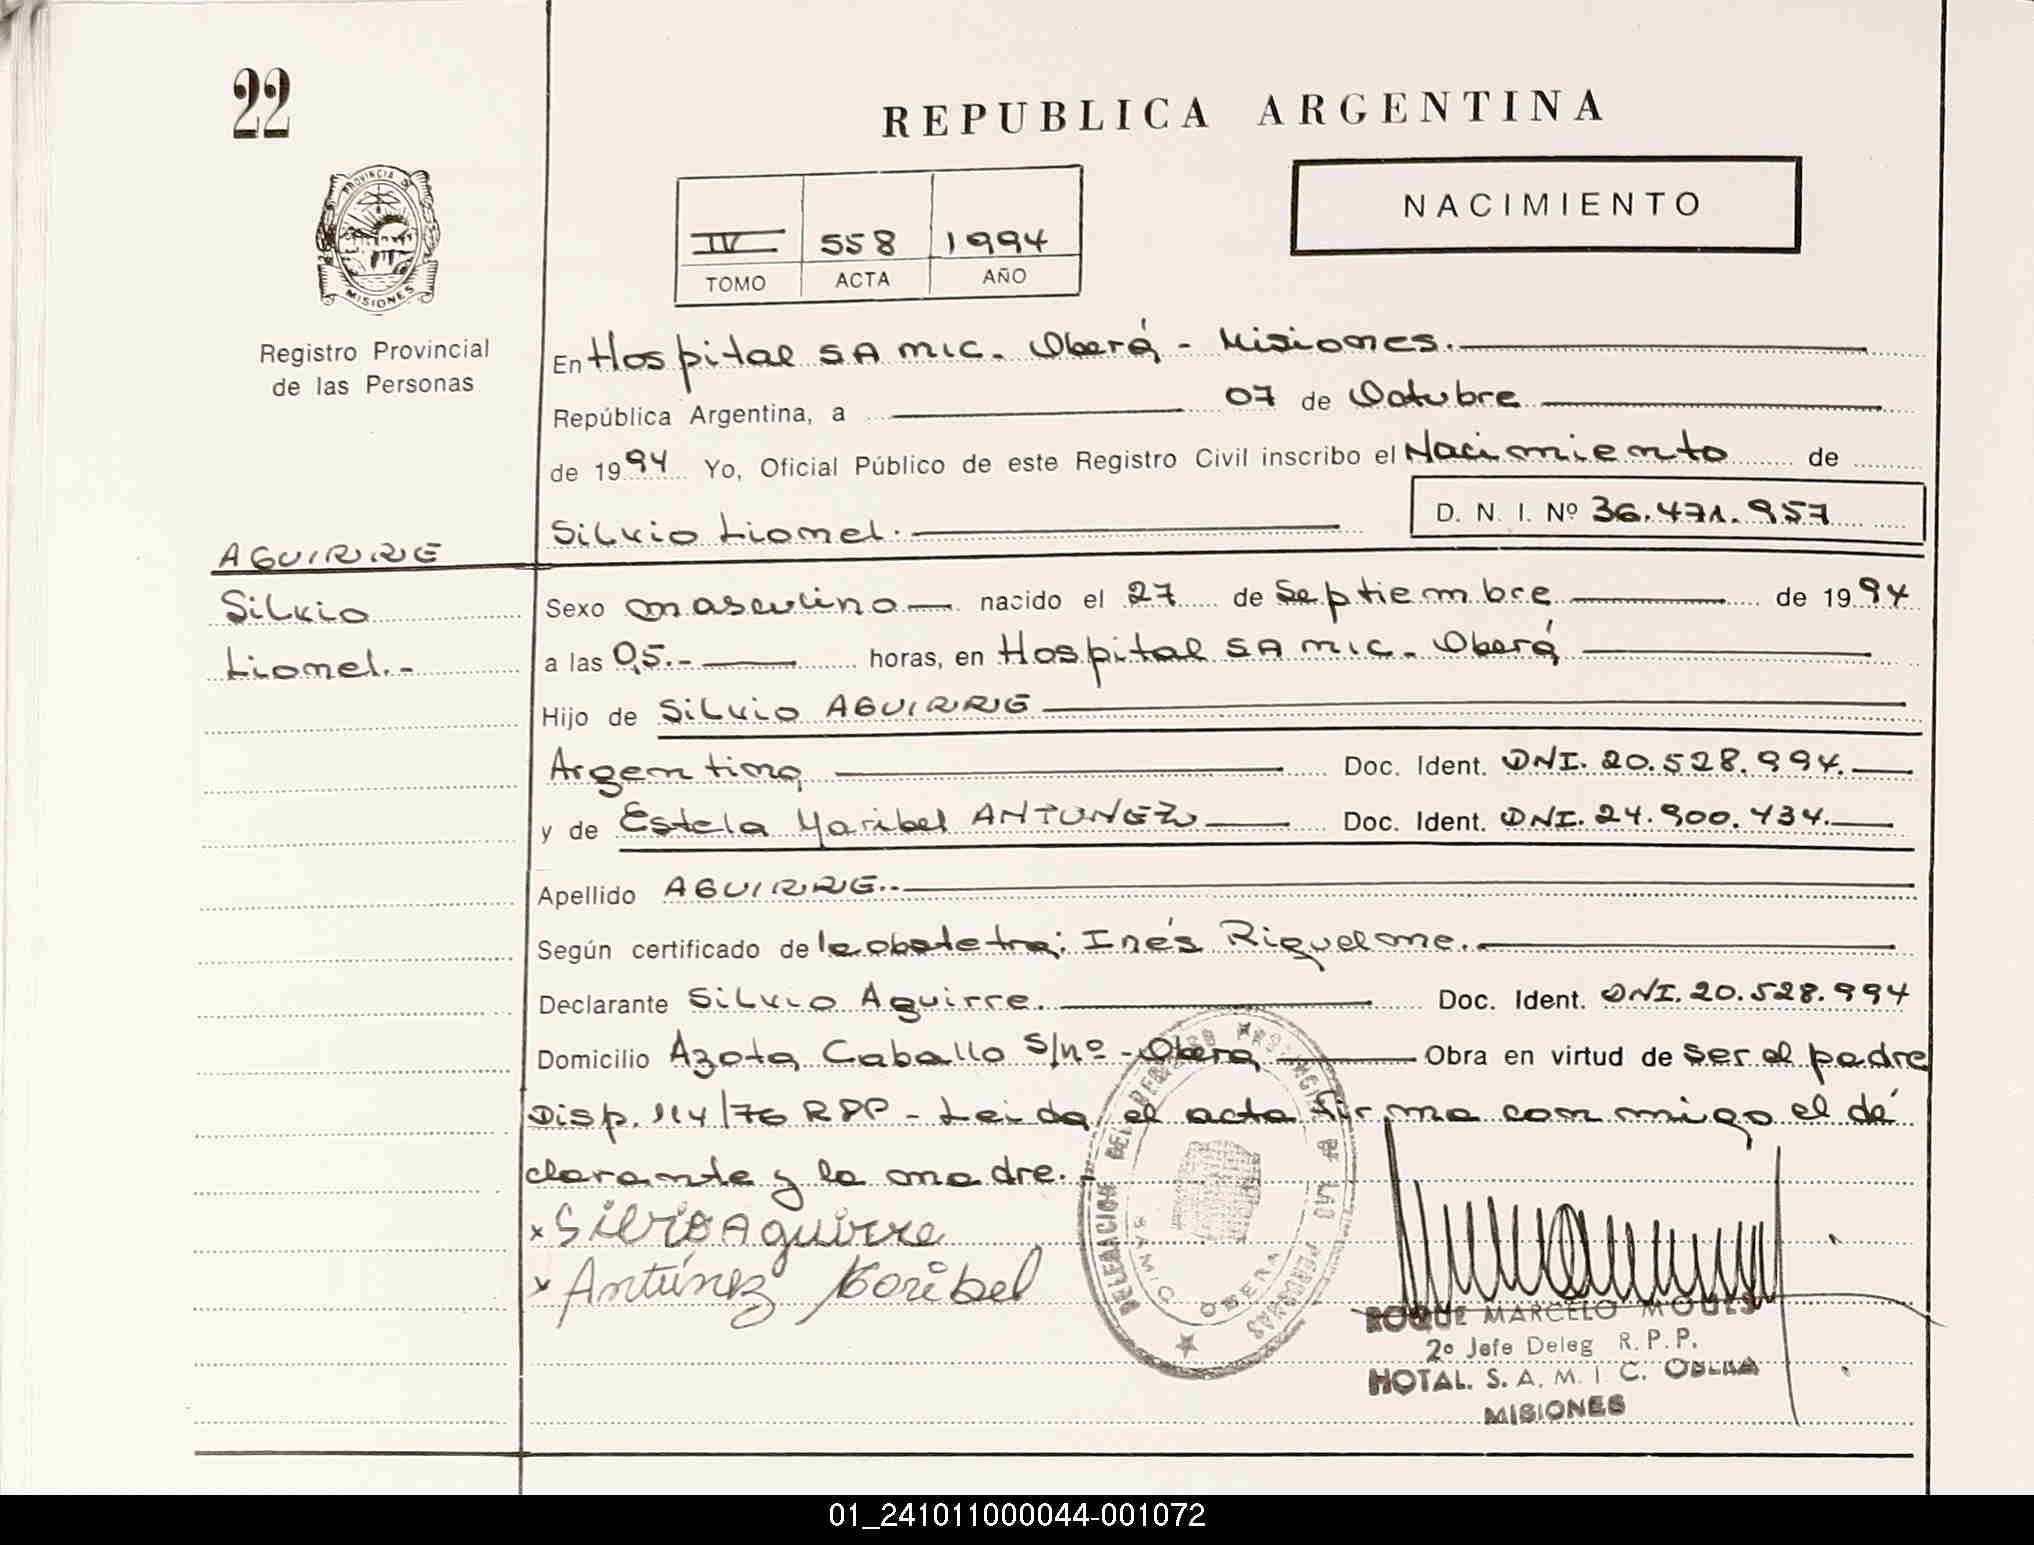 22
REPUBLICA ARGENTINA
PROVINCIA DE
MISIONES
Registro Provincial
de las Personas
IV 558 1994
TOMO ACTA AÑO
NACIMIENTO
En Hospital SAMIC. Oberá - Misiones.
República Argentina, a 07 de Octubre
de 1994 Yo, Oficial Público de este Registro Civil inscribo el Nacimiento de
Silvio Lionel. D. N. I. Nº 36.471.957
AGUIRRE
Silvio
Lionel.-
Sexo masculino nacido el 27 de Septiembre de 1994
a las 05.- horas, en Hospital SAMIC. Oberá
Hijo de Silvio AGUIRRE
Argentina Doc. Ident. DNI. 20.528.994.
y de Estela Maribel ANTUNEZ Doc. Ident. DNI. 24.900.434.
Apellido AGUIRRE.
Según certificado de la obstetra: Inés Riquelme.
Declarante Silvio Aguirre. Doc. Ident. DNI. 20.528.994
Domicilio Azota Caballo S/nº - Obera Obra en virtud de ser el padre
Disp. 114/76 RPP - Leida el acta firma conmigo el de
clarante y la madre.-
x Silvio Aguirre
x Antúnez Maribel
DELEGACION DEL REGISTRO PROVINCIAL DE LAS PERSONAS
SAMIC OBERA
ROQUE MARCELO
2º Jefe Deleg R.P.P.
HOTAL. S. A. M. I C. OBERA
MISIONES
01_241011000044-001072